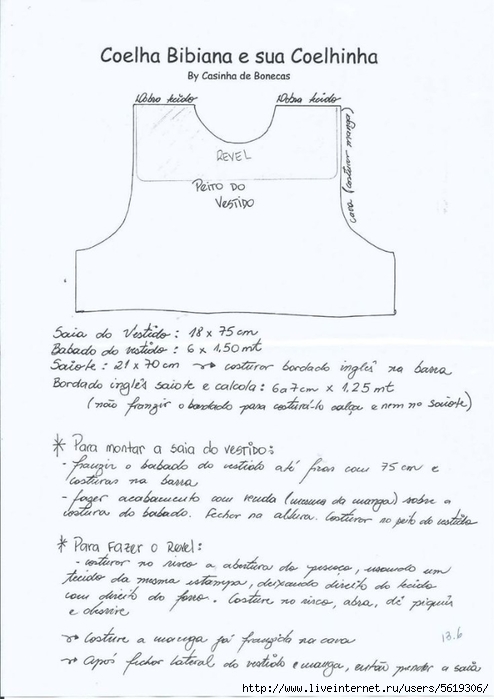 Coelha Bibiana e sua Coelhinha
By Casinha de Bonecas
Dobra tecido Dobra tecido
REVEL
PEITO DO
VESTIDO
cava (costurar manga)
Saia do Vestido: 18 x 75 cm
Babado do vestido: 6 x 1.50 mt
Saiote: 21 x 70 cm → costurar bordado inglês na barra
Bordado inglês saiote e calçola: 6 a 7 cm x 1.25 mt
(não franzir o bordado para costurá-lo calça e nem no saiote)
* Para montar a saia do vestido:
- franzir o babado do vestido até ficar com 75 cm e
costurar na barra
- fazer acabamento com renda (mesma da manga) sobre a
costura do babado. Fechar na altura. Costurar no peito do vestido
* Para Fazer o Revel:
- costurar no risco a abertura do pescoço, usando um
tecido da mesma estampa, deixando direito do tecido
com direito do forro. Costure no risco, abra, dê piques
e desvire
→ Costure a manga já franzida na cava
→ Após fechar lateral do vestido e manga, então prender a saia
13.6
http://www.liveinternet.ru/users/5619306/